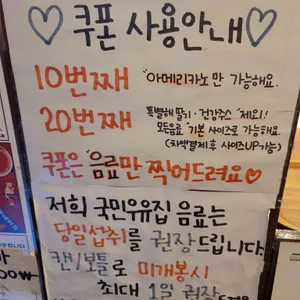 ♡쿠폰 사용안내♡
10번째 "아메리카노"만 가능해요.
20번째 특별해딸기·건강주스 "제외!
모든음료 "기본 사이즈로 가능해요.
(차액결제 후 사이즈UP가능)
쿠폰은 "음료"만 찍어드려요♡
저희 국민우유집 음료는
당일섭취를 권장드립니다
캔/보틀로 미개봉시
최대 1일 권장